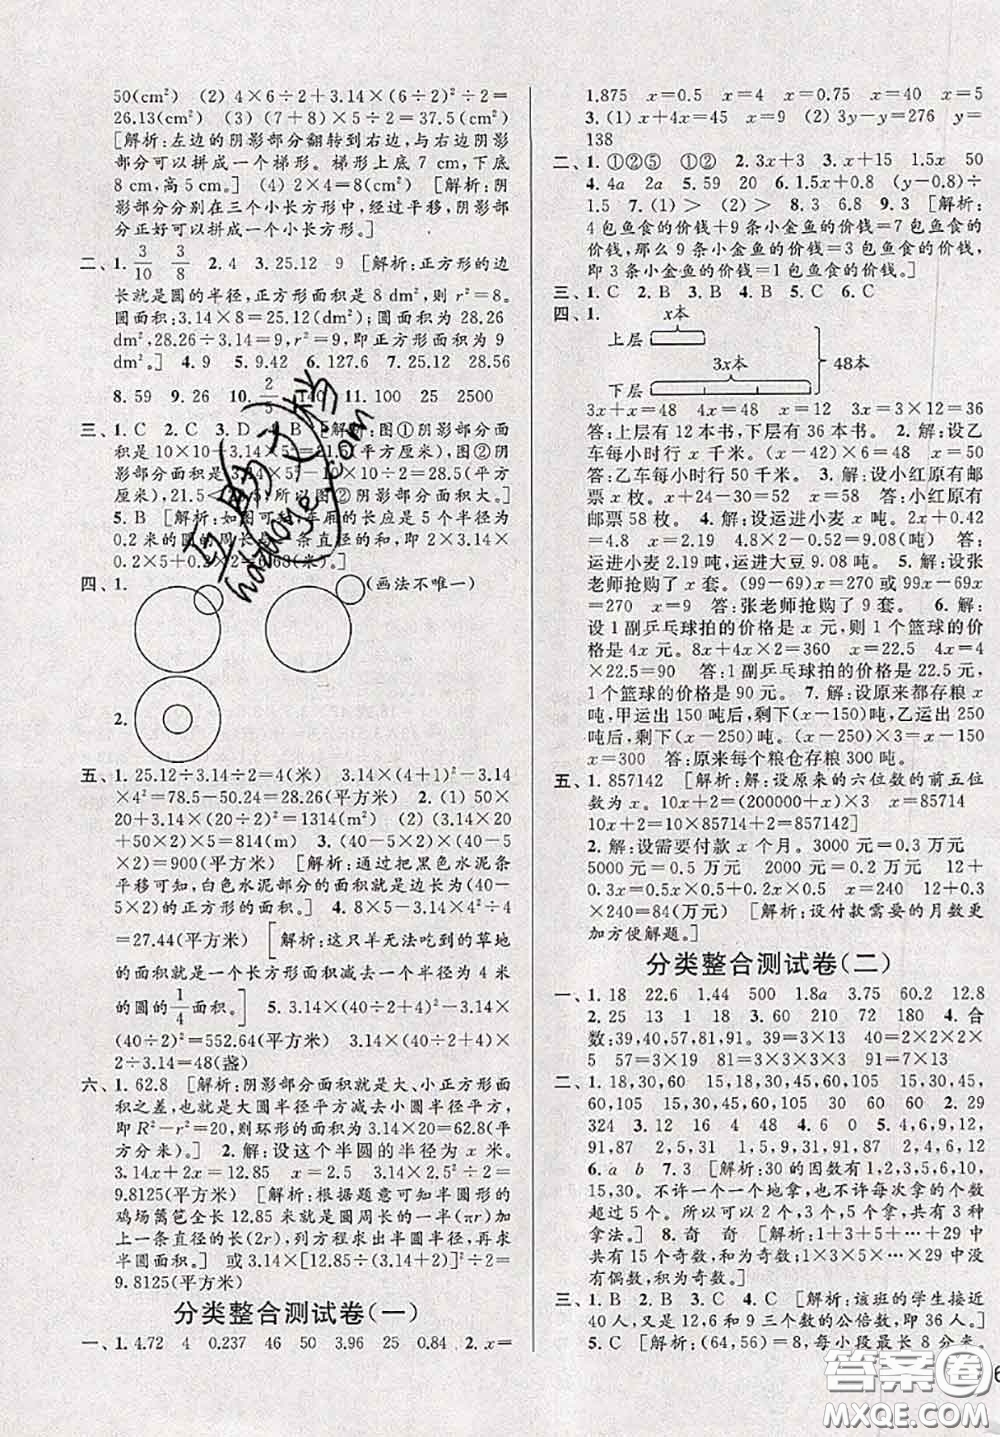 50(cm²) (2) 4×6÷2+3.14×(6÷2)²÷2=
26.13(cm²) (3) (7+8)×5÷2=37.5(cm²)
[解析:左边的阴影部分翻转到右边,与右边阴影
部分可以拼成一个梯形。梯形上底 7 cm,下底
8 cm,高 5 cm。] (4) 2×4=8(cm²) [解析:阴
影部分分别在三个小长方形中,经过平移,阴影
部分正好可以拼成一个小长方形。]
二、1. 3/10 3/8 2. 4 3. 25.12 9 [解析:正方形的边
长就是圆的半径,正方形面积是 8 dm²,则 r²=8。
圆面积:3.14×8=25.12(dm²);圆面积是 28.26
dm²,28.26÷3.14=9,r²=9,即正方形面积是 9
dm²。] 4. 9 5. 9.42 6. 127.6 7. 25.12 28.56
8. 59 9. 26 10. 2/5 140 11. 100 25 2500
三、1. C 2. C 3. D 4. B [解析:图①阴影部分面
积是 10×10-3.14×5²=21.5(平方厘米),图②
阴影部分面积是 3.14×5²-10×10÷2=28.5(平方
厘米),21.5<28.5,所以图②阴影部分面积大。]
5. B [解析:如图可知,车厢的长应是 5 个半径为
0.2 米的圆的周长与一条直径的和,即 2×3.14×
0.2×5+0.2×2=6.68(米)。]
四、1. (画法不唯一)
2.
五、1. 25.12÷3.14÷2=4(米) 3.14×(4+1)²-3.14
×4²=78.5-50.24=28.26(平方米) 2. (1) 50×
20+3.14×(20÷2)²=1314(m²) (2) (3.14×20
+50×2)×5=814(m) 3. (40-5×2)×(40-5
×2)=900(平方米) [解析:通过把黑色水泥条
平移可知,白色水泥部分的面积就是边长为(40-
5×2)的正方形的面积。] 4. 8×5-3.14×4²÷4
=27.44(平方米) [解析:这只羊无法吃到的草地
的面积就是一个长方形面积减去一个半径是 4 米
的圆的 1/4 面积。] 5. 3.14×(40÷2+4)²-3.14×
(40÷2)²=552.64(平方米) 3.14×(40÷2+4)×
2÷3.14=48(盏)
六、1. 62.8 [解析:阴影部分面积就是大、小正方形面
积之差,也就是大圆半径平方减去小圆半径平方,
即 R²-r²=20,则环形的面积=3.14×20=62.8(平
方分米)。] 2. 解:设这个半圆的半径为 x 米。
3.14x+2x=12.85 x=2.5 3.14×2.5²÷2=
9.8125(平方米) [解析:根据题意可知半圆形的
鸡场篱笆全长 12.85 米就是圆周长的一半(πr)加
上一条直径的长(2r),列方程求出半圆半径,再求
出半圆面积。] 或 3.14×[12.85÷(3.14+2)]²÷2=
9.8125(平方米)
分类整合测试卷(一)
一、1. 4.72 4 0.237 46 50 3.96 25 0.84 2. x=
1.875 x=0.5 x=4 x=0.75 x=40 x=5
3. (1) x+4x=45 x=9 (2) 3y-y=276 y=
138
二、1. ①②⑤ ①② 2. 3x+3 3. x+15 1.5x 50
4. 4a 2a 5. 59 20 6. 1.5x+0.8 (y-0.8)÷
1.5 7. (1) > (2) > 8. 3 6.8 9. 3 [解析:
4 包鱼食的价钱+9 条小金鱼的价钱=7 包鱼食的
价钱,那么 9 条小金鱼的价钱=3 包鱼食的价钱,
即 3 条小金鱼的价钱=1 包鱼食的价钱。]
三、1. C 2. B 3. B 4. B 5. C 6. C
四、1.
x本
上层
3x本 48本
下层
3x+x=48 4x=48 x=12 3x=3×12=36
答:上层有 12 本书,下层有 36 本书。 2. 解:设乙
车每小时行 x 千米。 (x-42)×6=48 x=50
答:乙车每小时行 50 千米。 3. 解:设小红原有邮
票 x 张。 x-34=24 x=58 答:小红原有
邮票 58 枚。 4. 解:设运进小麦 x 吨。 2x+0.42
=4.8 x=2.19 4.8×2-0.52=9.08(吨) 答:
运进小麦 2.19 吨,运进大豆 9.08 吨。 5. 解:设张
老师抢购了 x 套。 (99-69)x=270 99x-69x=
270 x=9 答:张老师抢购了 9 套。 6. 解:
设 1 副乒乓球拍的价格是 x 元,则 1 个篮球的价
格是 4x 元。 8x+4x×2=360 x=22.5 4x
=4×22.5=90 答:1 副乒乓球拍的价格是 22.5 元,
1 个篮球的价格是 90 元。 7. 解:设原来都存粮 x
吨,甲运出 150 吨后,剩下(x-150)吨,乙运出 250
吨后,剩下(x-250)吨。 (x-250)×3=x-150
x=300 答:原来每个粮仓存粮 300 吨。
五、1. 857142 [解析:解:设原来的六位数的前五位
数为 x。 10x+2=(200000+x)×3 x=85714
10x+2=10×85714+2=857142]
2. 解:设需要付款 x 个月。 3000 元=0.3 万元
5000 元=0.5 万元 0.5x 万元 2000 万元 12+
0.3x=0.5x x=240 12+0.3x=12+0.3
×240=84(万元) [解析:设付款需要的月数更
加方便解题。]
分类整合测试卷(二)
一、1. 18 22.6 1.44 500 1.8a 3.75 60.2 12.8
2. 25 13 1 18 3. 60 210 72 180 4. 合
数:39,40,57,81,91。 39=3×13 40=2×2×2×
5 57=3×19 81=3×3×3×3 91=7×13
二、1. 18,30,60 15,18,30,45,60,105 15,30,45,
60,105 15,30,45,60,105 30 60 60 2. 29
324 3. 12 16 4 48 6 0 4. 5 4,6,9,12,
91,87 2,5,31 1,5,9,31,91,87 2,4,6,12
6. a b 7. 3 [解析:30 的因数有 1,2,3,5,6,10,
15,30。不许一个一个地拿,也不许每次拿的个数
超过 5 个。所以可以 2 个,3 个,5 个拿,共有 3 种
拿法。] 8. 奇 奇 [解析:1+3+5+…+29 中
共有 15 个奇数,和为奇数;1×3×5×…×29 中没有
偶数,积为奇数。]
三、1. B 2. C 3. B 4. B [解析:该班的学生接近
40 人,又是 12,6 和 9 三个数的公倍数,即 36 人。]
5. C [解析:(64,56)=8,每小段最长 8 分米。
答案圈
MXQE.COM